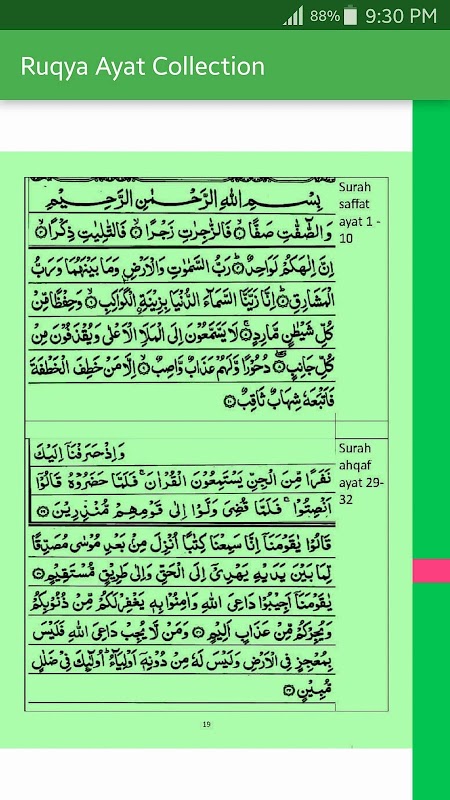 88% 9:30 PM
Ruqya Ayat Collection
بِسْمِ اللهِ الرَّحْمٰنِ الرَّحِيْمِ
وَالصّٰٓفّٰتِ صَفًّا ۱ فَالزّٰجِرٰتِ زَجْرًا ۲ فَالتّٰلِيٰتِ ذِكْرًا ۳
اِنَّ اِلٰهَكُمْ لَوَاحِدٌ ۴ رَبُّ السَّمٰوٰتِ وَالْاَرْضِ وَمَا بَيْنَهُمَا وَرَبُّ
الْمَشَارِقِ ۵ اِنَّا زَيَّنَّا السَّمَآءَ الدُّنْيَا بِزِيْنَةِ ِۨالْكَوَاكِبِ ۶ وَحِفْظًا مِّنْ
كُلِّ شَيْطٰنٍ مَّارِدٍ ۷ لَا يَسَّمَّعُوْنَ اِلَى الْمَلَاِ الْاَعْلٰى وَيُقْذَفُوْنَ مِنْ
كُلِّ جَانِبٍ ۸ دُحُوْرًا وَّلَهُمْ عَذَابٌ وَّاصِبٌ ۹ اِلَّا مَنْ خَطِفَ الْخَطْفَةَ
فَاَتْبَعَهٗ شِهَابٌ ثَاقِبٌ ۱۰
Surah
saffat
ayat 1 -
10
وَاِذْ صَرَفْنَآ اِلَيْكَ
نَفَرًا مِّنَ الْجِنِّ يَسْتَمِعُوْنَ الْقُرْاٰنَ ۚ فَلَمَّا حَضَرُوْهُ قَالُوْٓا
اَنْصِتُوْا ۚ فَلَمَّا قُضِيَ وَلَّوْا اِلٰى قَوْمِهِمْ مُّنْذِرِيْنَ ۲۹
قَالُوْا يٰقَوْمَنَآ اِنَّا سَمِعْنَا كِتٰبًا اُنْزِلَ مِنْۢ بَعْدِ مُوْسٰى مُصَدِّقًا
لِّمَا بَيْنَ يَدَيْهِ يَهْدِيْٓ اِلَى الْحَقِّ وَاِلٰى طَرِيْقٍ مُّسْتَقِيْمٍ ۳۰
يٰقَوْمَنَآ اَجِيْبُوْا دَاعِيَ اللهِ وَاٰمِنُوْا بِهٖ يَغْفِرْ لَكُمْ مِّنْ ذُنُوْبِكُمْ
وَيُجِرْكُمْ مِّنْ عَذَابٍ اَلِيْمٍ ۳۱ وَمَنْ لَّا يُجِبْ دَاعِيَ اللهِ فَلَيْسَ
بِمُعْجِزٍ فِي الْاَرْضِ وَلَيْسَ لَهٗ مِنْ دُوْنِهٖٓ اَوْلِيَآءُ ؕ اُولٰٓئِكَ فِيْ ضَلٰلٍ
مُّبِيْنٍ ۳۲
Surah
ahqaf
ayat 29-
32
19